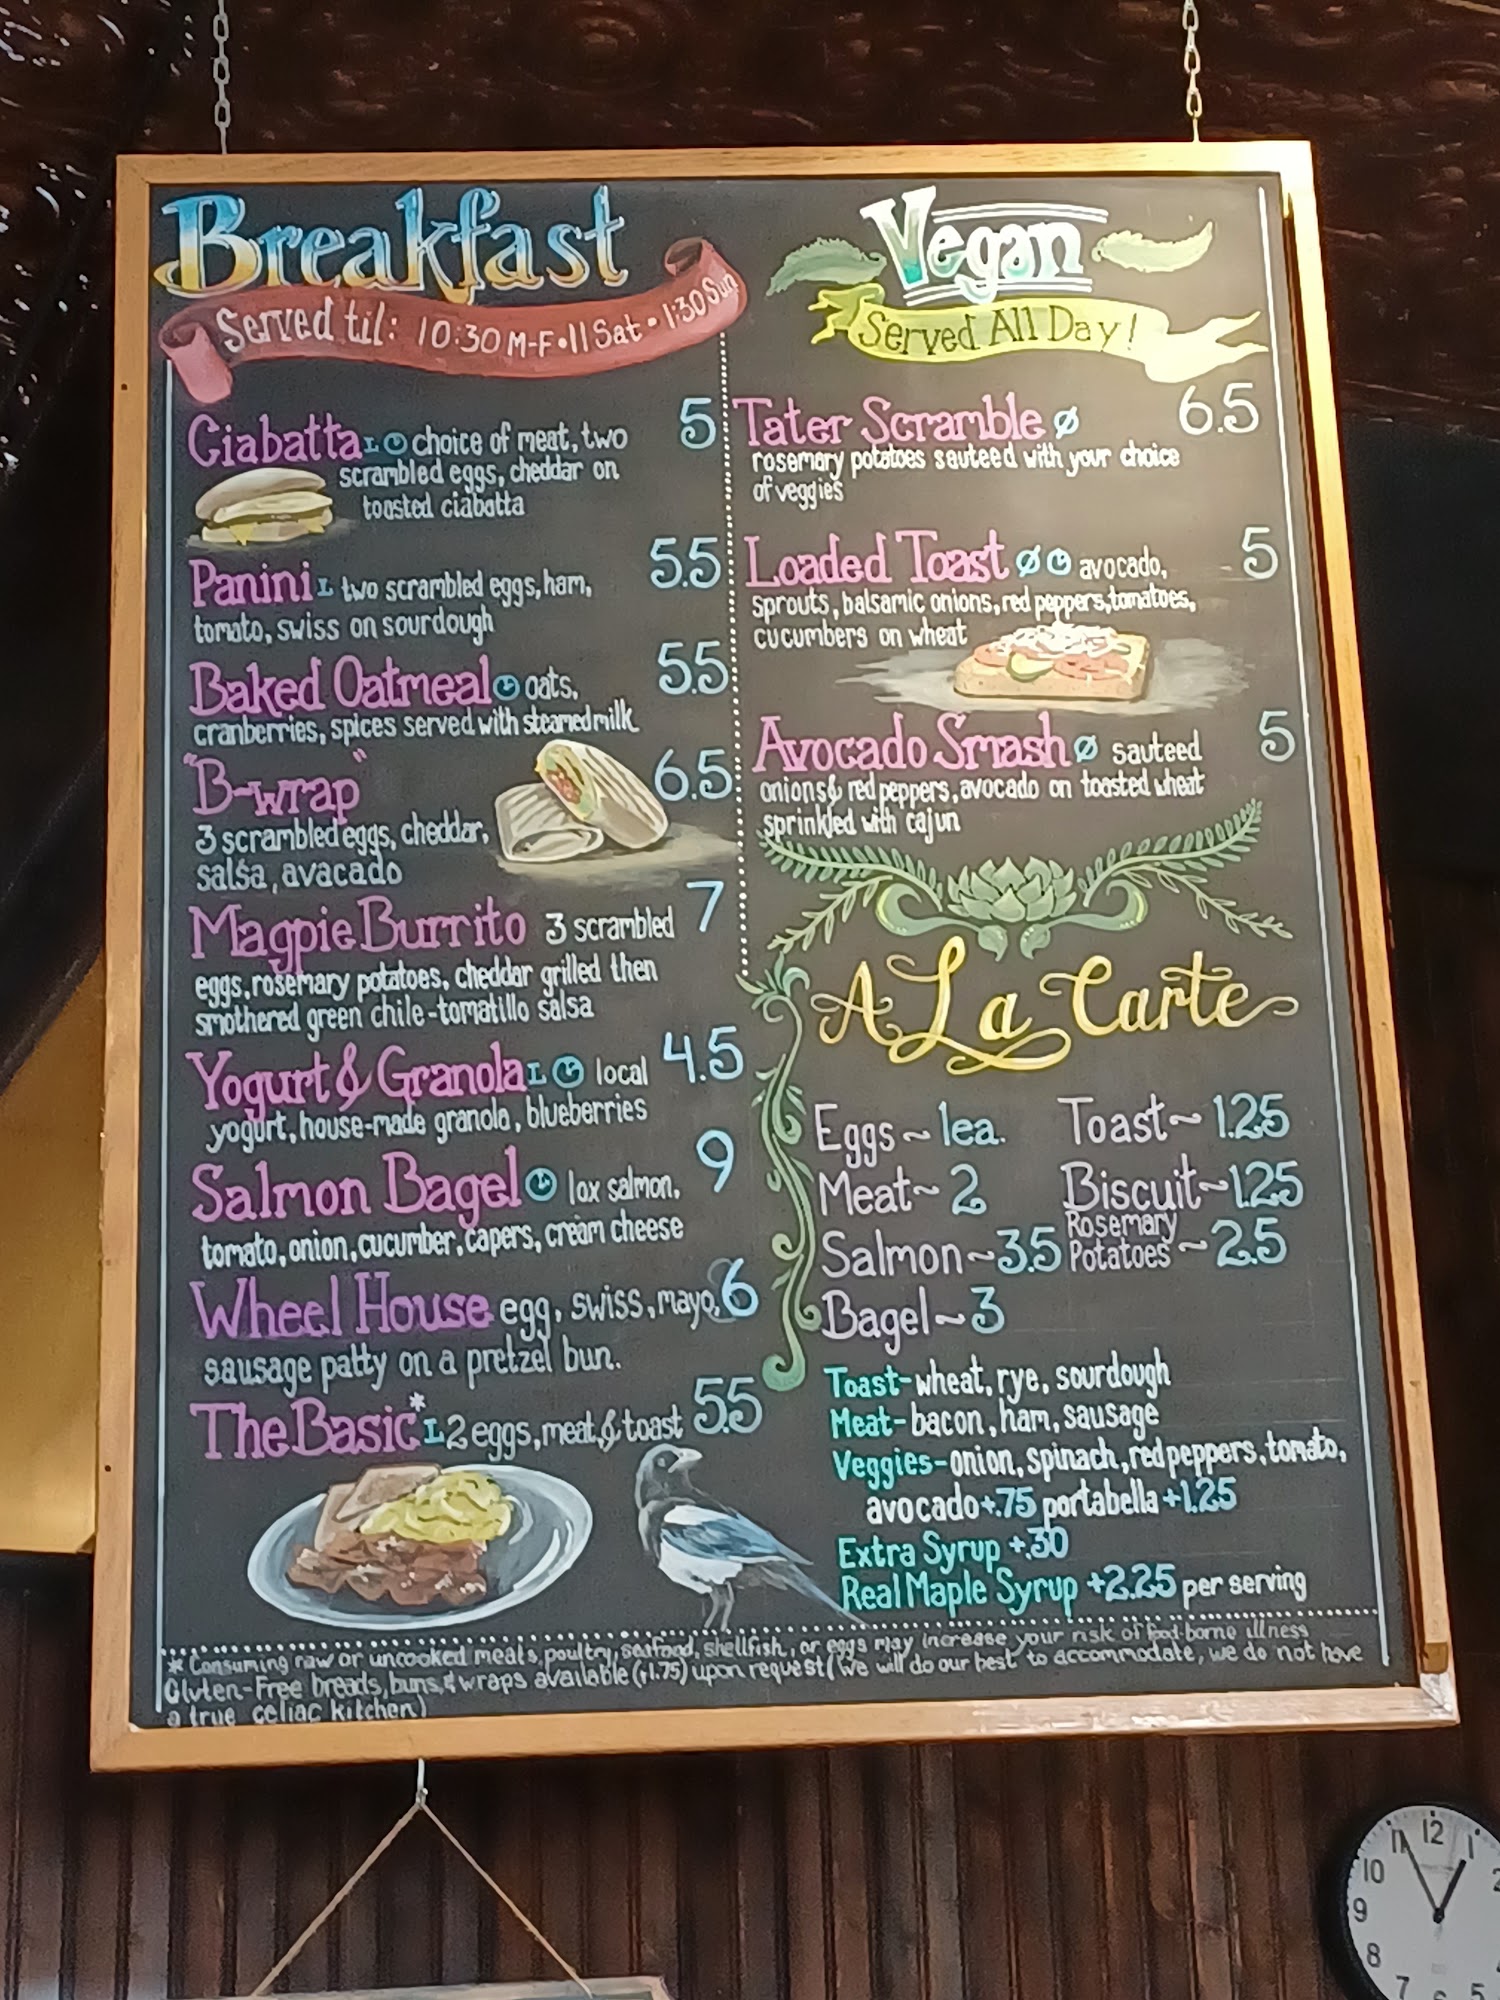 Breakfast
Served til: 10:30 M-F • 11 Sat • 1:30 Sun
Ciabatta L choice of meat, two 5
scrambled eggs, cheddar on
toasted ciabatta
Panini L two scrambled eggs, ham, 5.5
tomato, swiss on sourdough
Baked Oatmeal oats, 5.5
cranberries, spices served with steamed milk
"B-wrap" 6.5
3 scrambled eggs, cheddar,
salsa, avacado
Magpie Burrito 3 scrambled 7
eggs, rosemary potatoes, cheddar grilled then
smothered green chile-tomatillo salsa
Yogurt & Granola L local 4.5
yogurt, house-made granola, blueberries
Salmon Bagel lox salmon, 9
tomato, onion, cucumber, capers, cream cheese
Wheel House egg, swiss, mayo, 6
sausage patty on a pretzel bun.
The Basic* L 2 eggs, meat, & toast 5.5
Vegan
Served All Day!
Tater Scramble Ø 6.5
rosemary potatoes sauteed with your choice
of veggies
Loaded Toast Ø avocado, 5
sprouts, balsamic onions, red peppers, tomatoes,
cucumbers on wheat
Avocado Smash Ø sauteed 5
onions & red peppers, avocado on toasted wheat
sprinkled with cajun
A La Carte
Eggs ~ 1 ea. Toast ~ 1.25
Meat ~ 2 Biscuit ~ 1.25
Salmon ~ 3.5 Rosemary Potatoes ~ 2.5
Bagel ~ 3
Toast- wheat, rye, sourdough
Meat- bacon, ham, sausage
Veggies- onion, spinach, red peppers, tomato,
avocado +.75 portabella +1.25
Extra Syrup +.30
Real Maple Syrup +2.25 per serving
* Consuming raw or uncooked meats, poultry, seafood, shellfish, or eggs may increase your risk of food-borne illness
Gluten-Free breads, buns, & wraps available (+1.75) upon request (We will do our best to accommodate, we do not have
a true celiac kitchen)
11 12 1
10 2
9
8
7 6 5